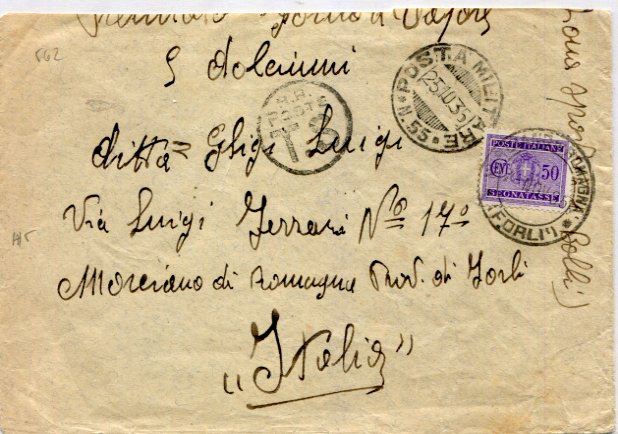 Premiato Forno a Vapore
562
& dolciumi
POSTA MILITARE
25.10.35
N. 55
R.R.
POSTE
T S
ditta= Ghigi Luigi
POSTE ITALIANE
CENT. 50
SEGNATASSE
(FORLI')
Via Luigi Ferrari Nº 17º
Morciano di Romagna Prov. di Forlì
„Italia”